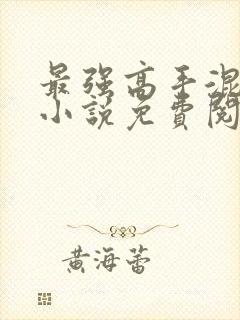 最强高手混
小说免费阅
黄海蕾